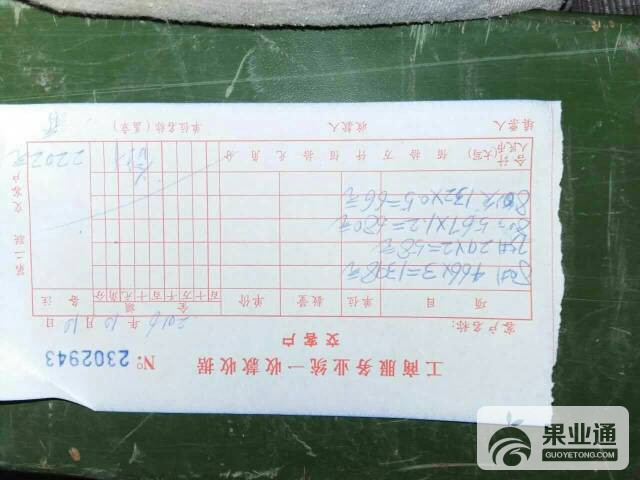 工商服务业统一收款收据
交客户
№ 2302943
客户名称: 2016 年 10 月 10 日
项 目 单位 数量 单价 金额 备注
百十万千百十元角分
466×3=1398元
29×2=58元
567×1.2=680元
132×0.5=66元
合计人民币(大写) 佰 拾 万 仟 佰 拾 元 角 分 2202元
填票人 收款人 单位名称(盖章)
第二联 交客户
果业通
GUOYETONG.COM